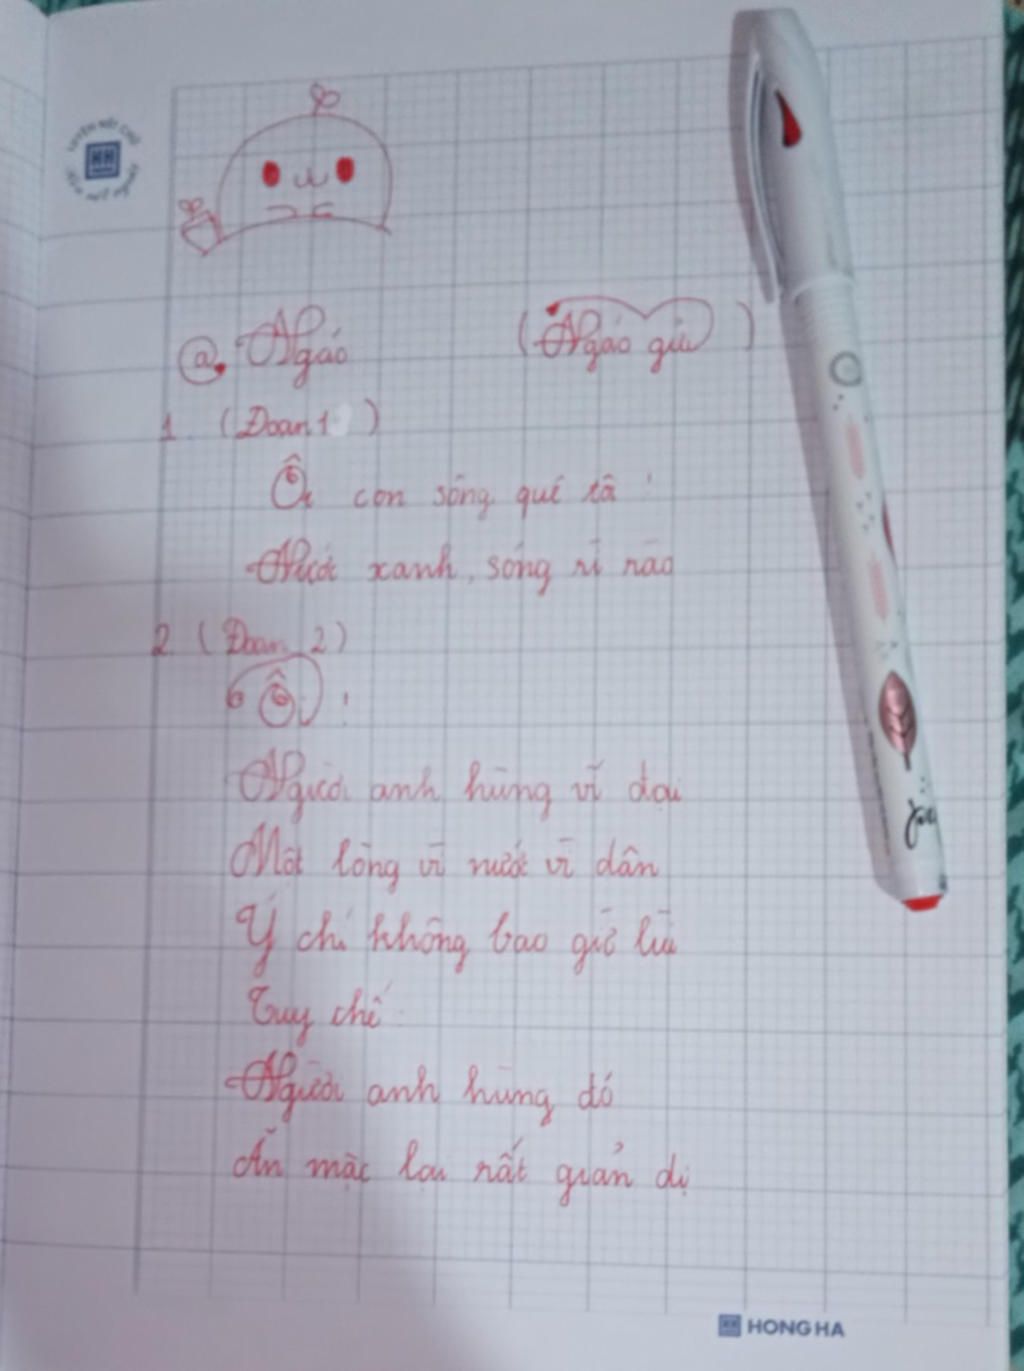 HH
@. Ngáo (Ngáo gửi)
1. (Đoạn 1)
Ôi con sông quê tả !
Nước xanh, sóng rì rào
2 (Đoạn 2)
Ôi !
Người anh hùng vĩ đại
Một lòng vì nước vì dân
Ý chí không bao giờ lùi
Tuy chế
Người anh hùng đó
Ăn mặc lại rất giản dị
HONG HA